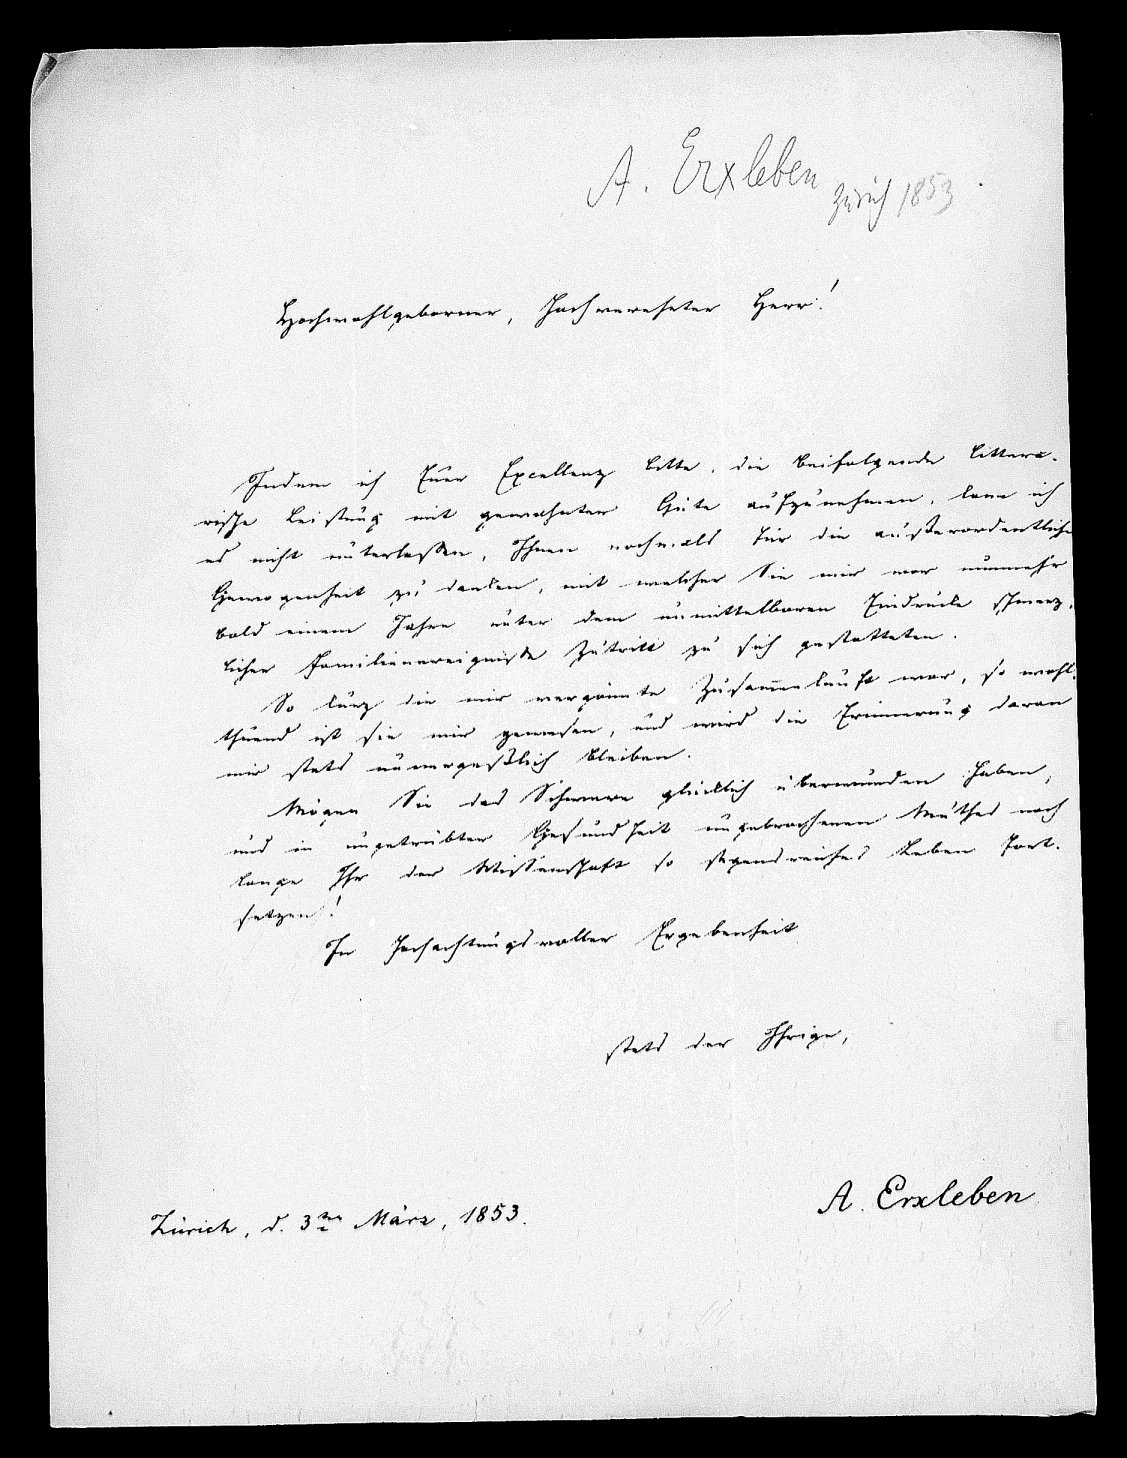 A. Erxleben
Zürich 1853.
Hochwohlgeborner, Hochverehrter Herr!
Indem ich Euer Excellenz bitte, die beifolgende littera-
rische Leistung mit gewohnter Güte aufzunehmen, kann ich
es nicht unterlassen, Ihnen nochmals für die außerordentliche
Gewogenheit zu danken, mit welcher Sie mir vor nunmehr
bald einem Jahre unter dem unmittelbaren Eindrucke schmerz-
licher Familienereignisse Zutritt zu sich gestatteten.
So kurz die mir vergönnte Zusammenkunft war, so wohl-
thuend ist sie mir gewesen, und wird die Erinnerung daran
mir stets unvergeßlich bleiben.
Mögen Sie das Schwere glücklich überwunden haben,
und in ungetrübter Gesundheit ungebrochenen Muthes noch
lange Ihr der Wissenschaft so segensreiches Leben fort-
setzen!
In hochachtungsvoller Ergebenheit
stets der Ihrige,
A. Erxleben
Zürich, d. 3ten März, 1853.